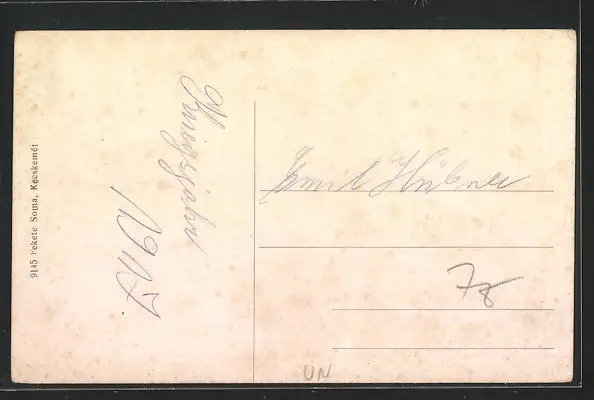 9145 Fekete Soma, Kecskemét
Kriegsjahr
1917
Emil Hübner
78
UN